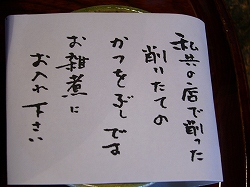 私共の店で削った
削いたての
かつをぶしです
お雑煮に
お入れ下さい